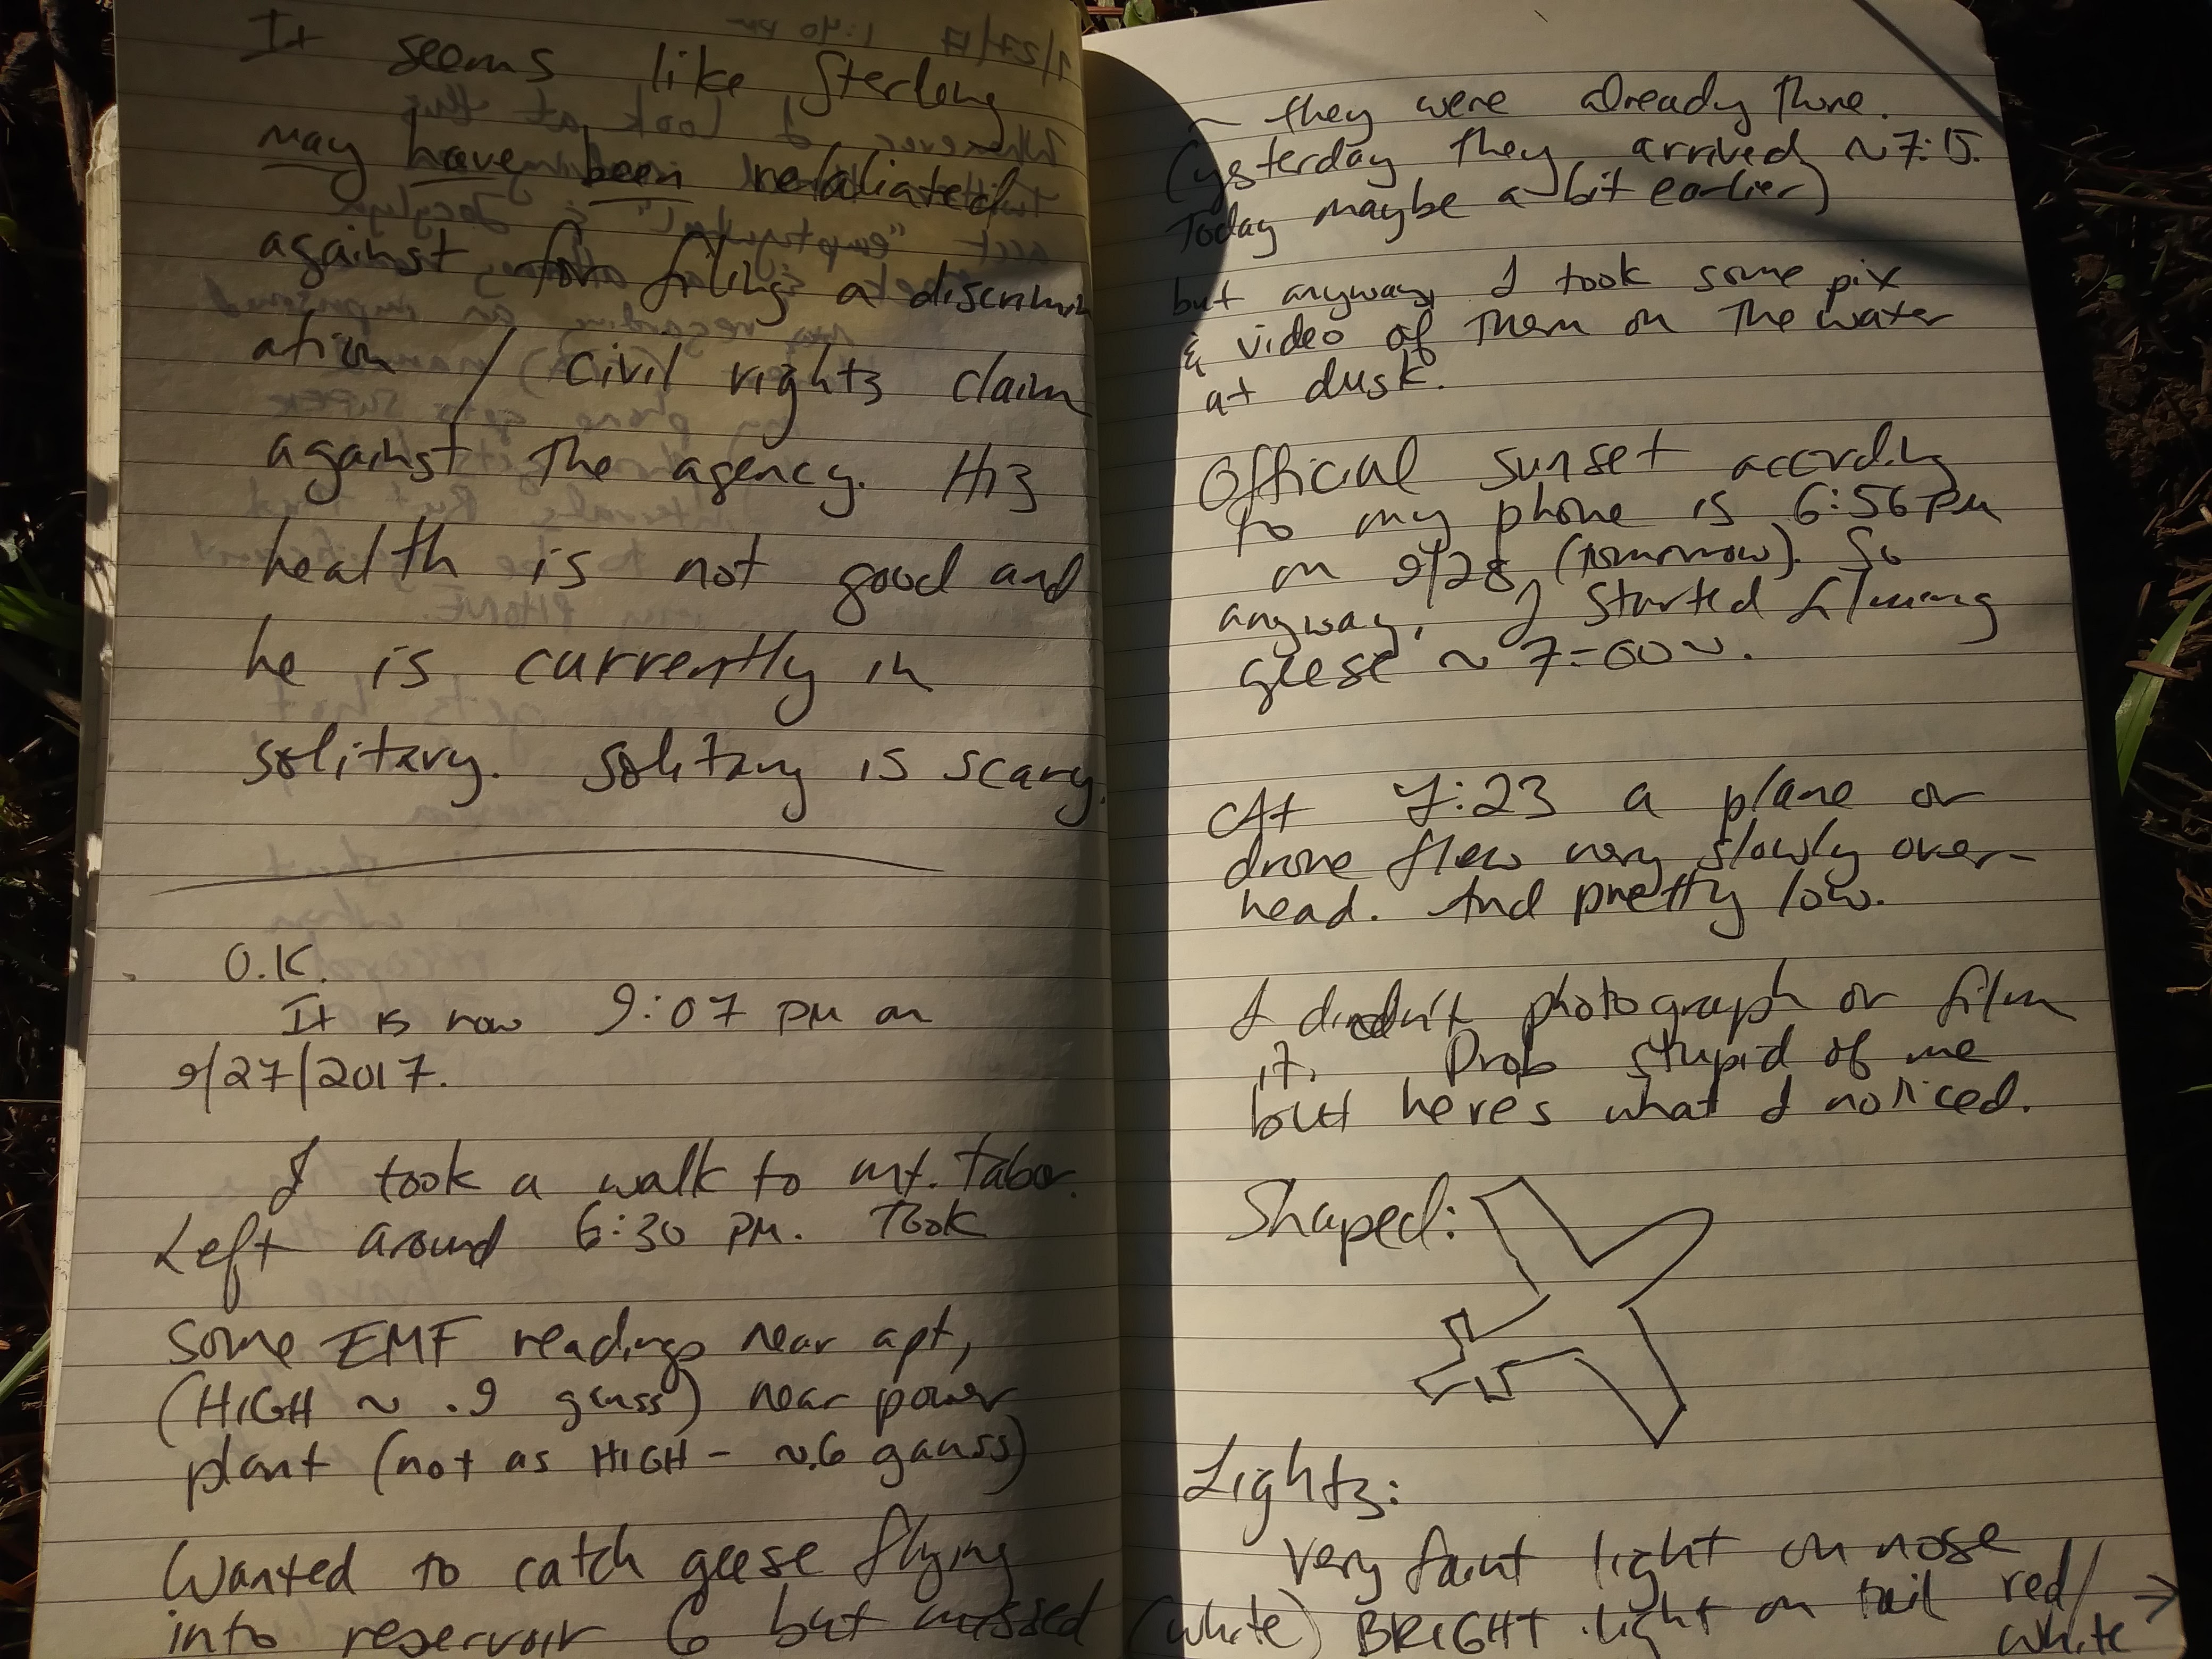 It seems like Sterling
may have been retaliated
against for filing a discrimin
ation / civil rights claim
against the agency. His
health is not good and
he is currently in
solitary. Solitary is scary.
O.K.
It is now 9:07 PM on
9/27/2017.
I took a walk to Mt. Tabor.
Left around 6:30 PM. Took
Some EMF readings near apt,
(HIGH ~ .9 gauss) near power
plant (not as HIGH - ~.6 gauss)
Wanted to catch geese flying
into reservoir 6 but missed
~ they were already there.
(yesterday they arrived ~7:15.
Today maybe a bit earlier)
but anyway, I took some pix
& video of them on the water
at dusk.
Official sunset according
to my phone is 6:56 PM
on 9/28 (tomorrow). So
anyway, I started filming
geese ~ 7:00~.
At 7:23 a plane or
drone flew very slowly over-
head. And pretty low.
I didn't photograph or film
it. Prob stupid of me
but heres what I noticed.
Shaped:
Lights:
Very faint light on nose
(white) BRIGHT light on tail red/
white →